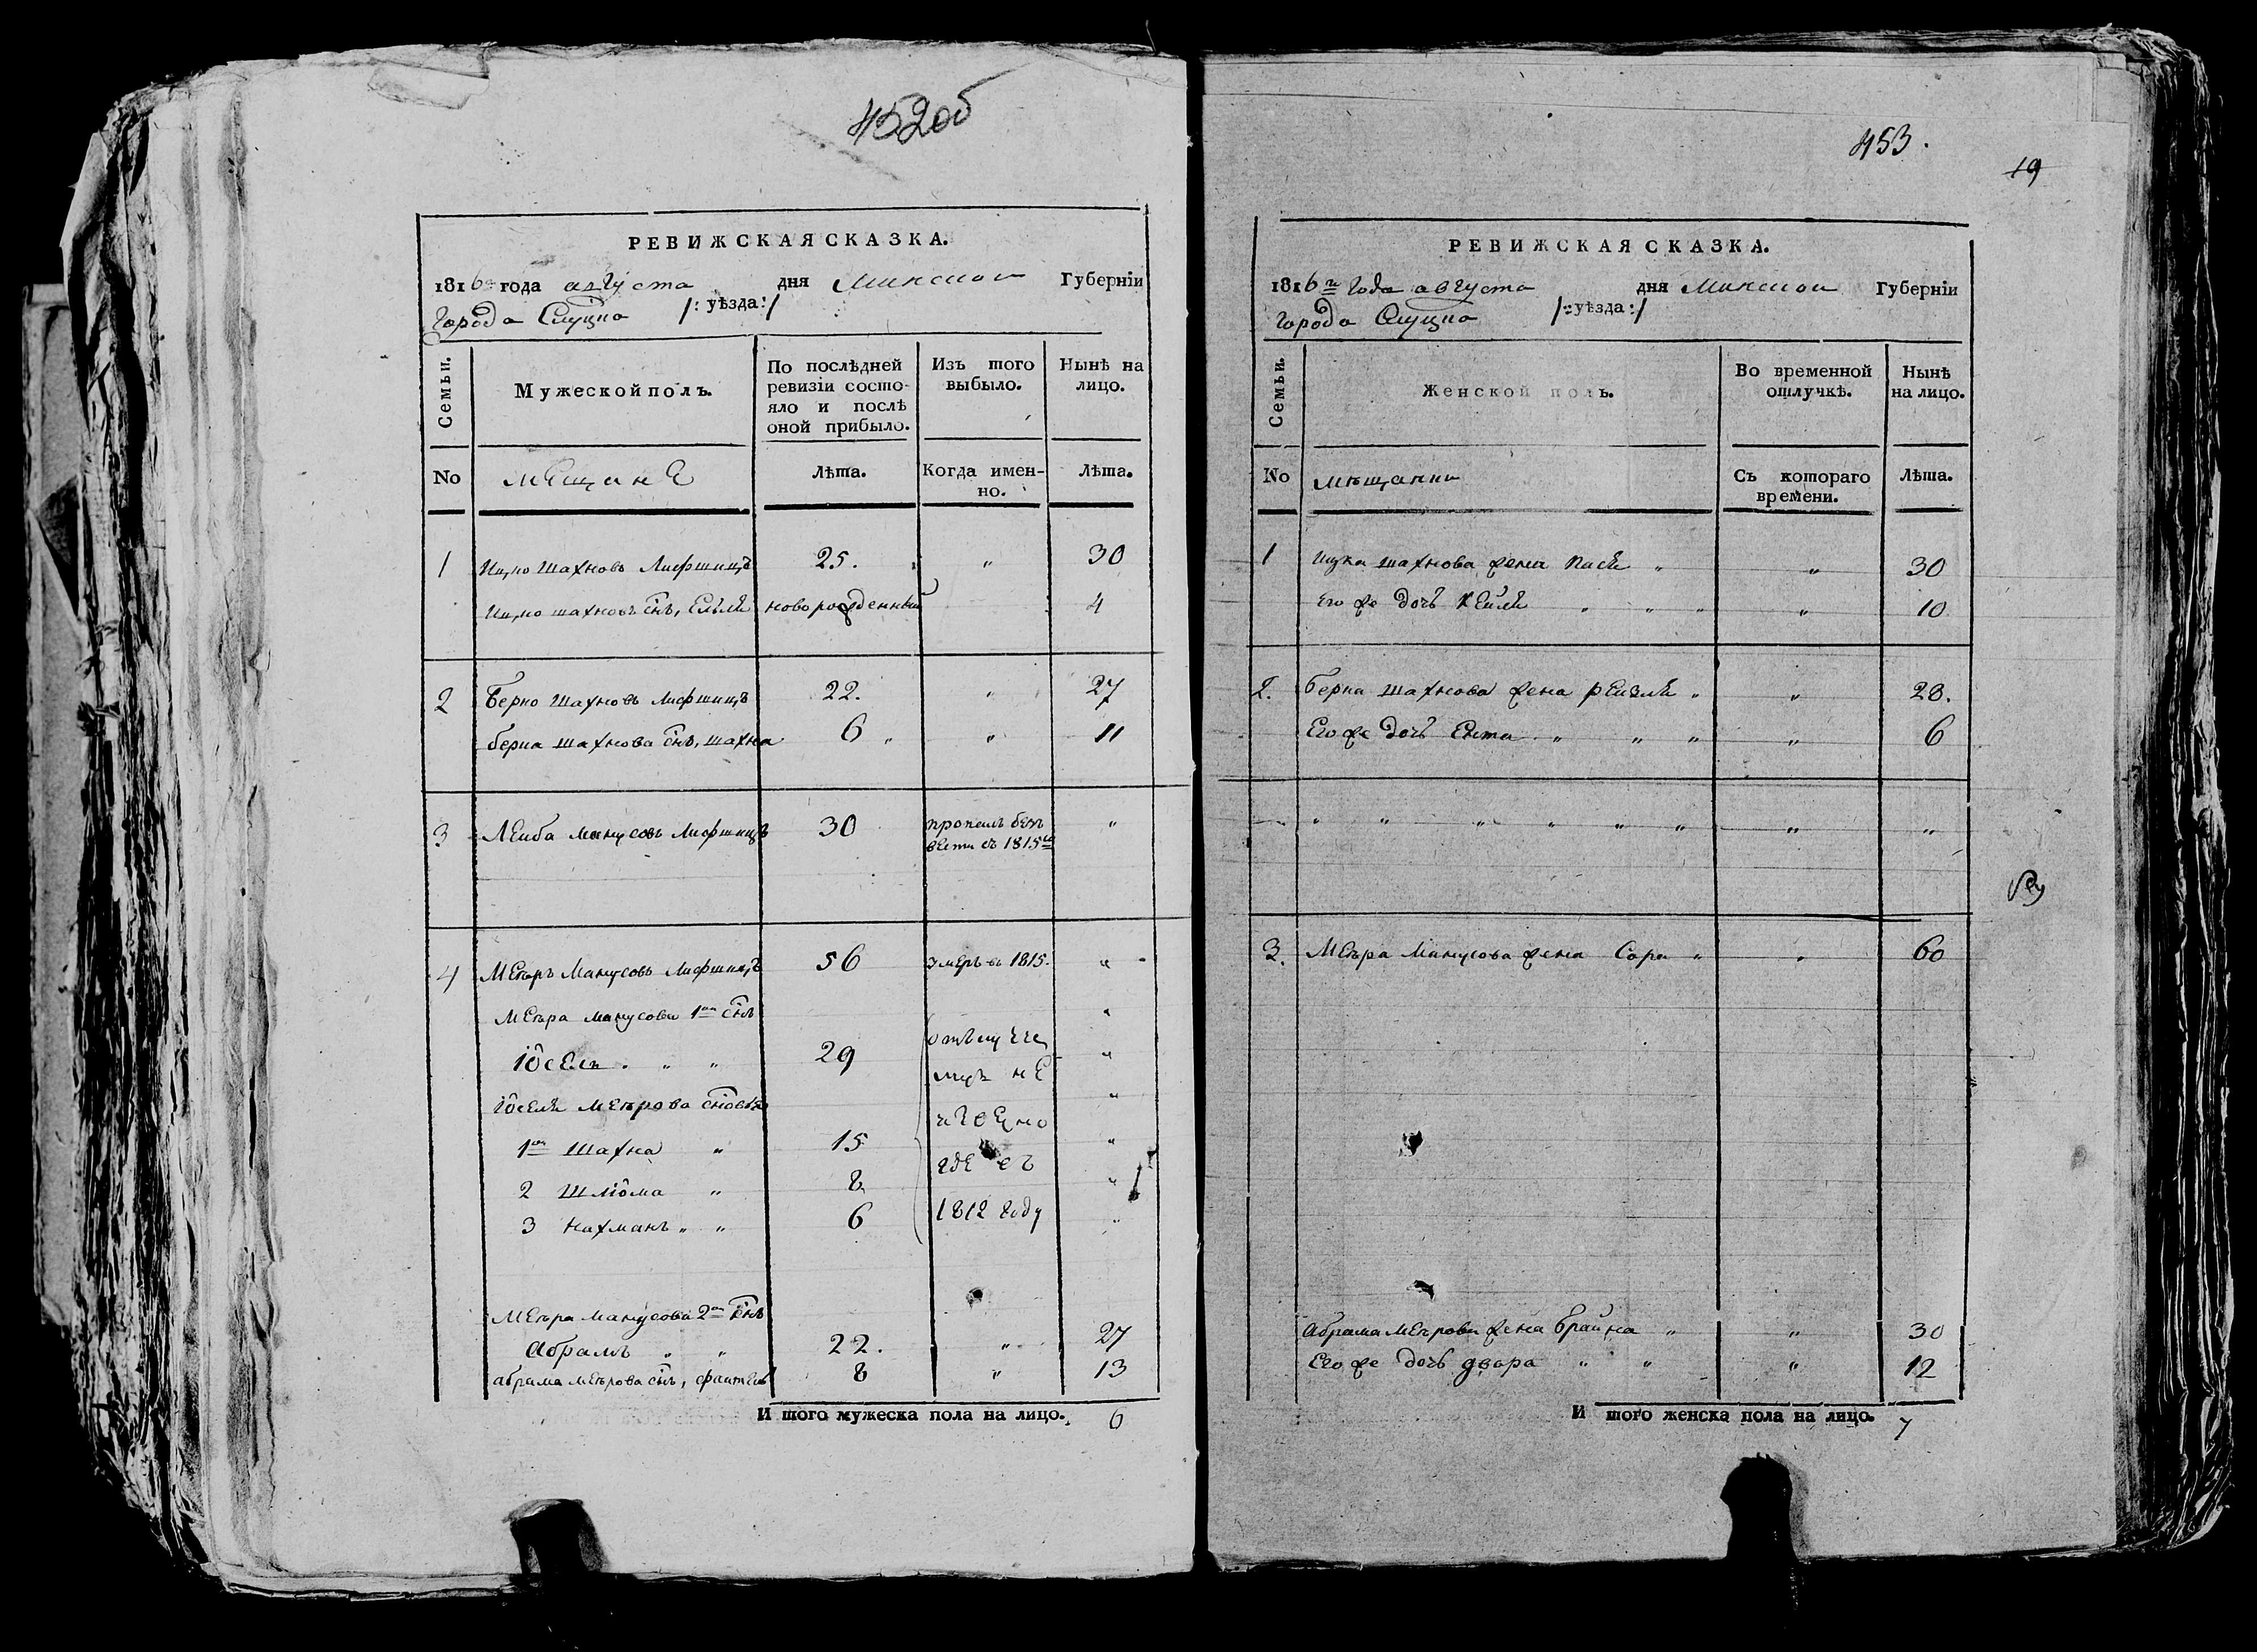 452об
РЕВИЖСКАЯ СКАЗКА.
1816го года августа дня Минской Губернїи
Города Слуцка /: уѣзда :/
Семьи. Мужеской полъ. По послѣдней ревизїи состояло и послѣ оной прибыло. Изъ того выбыло. Нынѣ на лицо.
No мещане Лѣта. Когда именно. Лѣта.
1 Ицко Шахновъ Лифшицъ 25. " 30
Ицко шахновъ снъ, новорожденный 4
2 Берко Шахновъ Лифшицъ 22. " 27
берка шахнова снъ, шахна 6 " " 11
3 Леиба Манусовъ Лифшицъ 30 пропалъ безъ вести съ 1815го "
4 Меeръ Манусовъ Лифшицъ 56 умеръ въ 1815. "
Меера манусова 1ой снъ "
Іосель " " 29 "
Іоселя Меерова сновья "
1ой Шахна " 15 "
2 Шліома " 8 "
3 Нахманъ " " 6 1812 году "
Меера манусова 2ой снъ
Абрамъ " " 22. " 27
абрама меерова снъ, фаитель 8 " 13
И того мужеска пола на лицо. 6
453.
19
РЕВИЖСКАЯ СКАЗКА.
1816го года августа дня Минской Губернїи
Города Слуцка /: уѣзда :/
Семьи. Женской полъ. Во временной отлучкѣ. Нынѣ на лицо.
No мѣщанки Съ котораго времени. Лѣта.
1 Ицка шахнова жена Пася " " 30
Его же дочь Кейля " " " " 10
2. берка шахнова жена Реизля " " 28.
Его же дочь Ента " " " " 6
" " " " " " " "
3. Меера Манусова жена Сора " " 60
Абрама Меерова жена браина " " 30
Его же дочь двора " " " 12
И того женска пола на лицо. 7